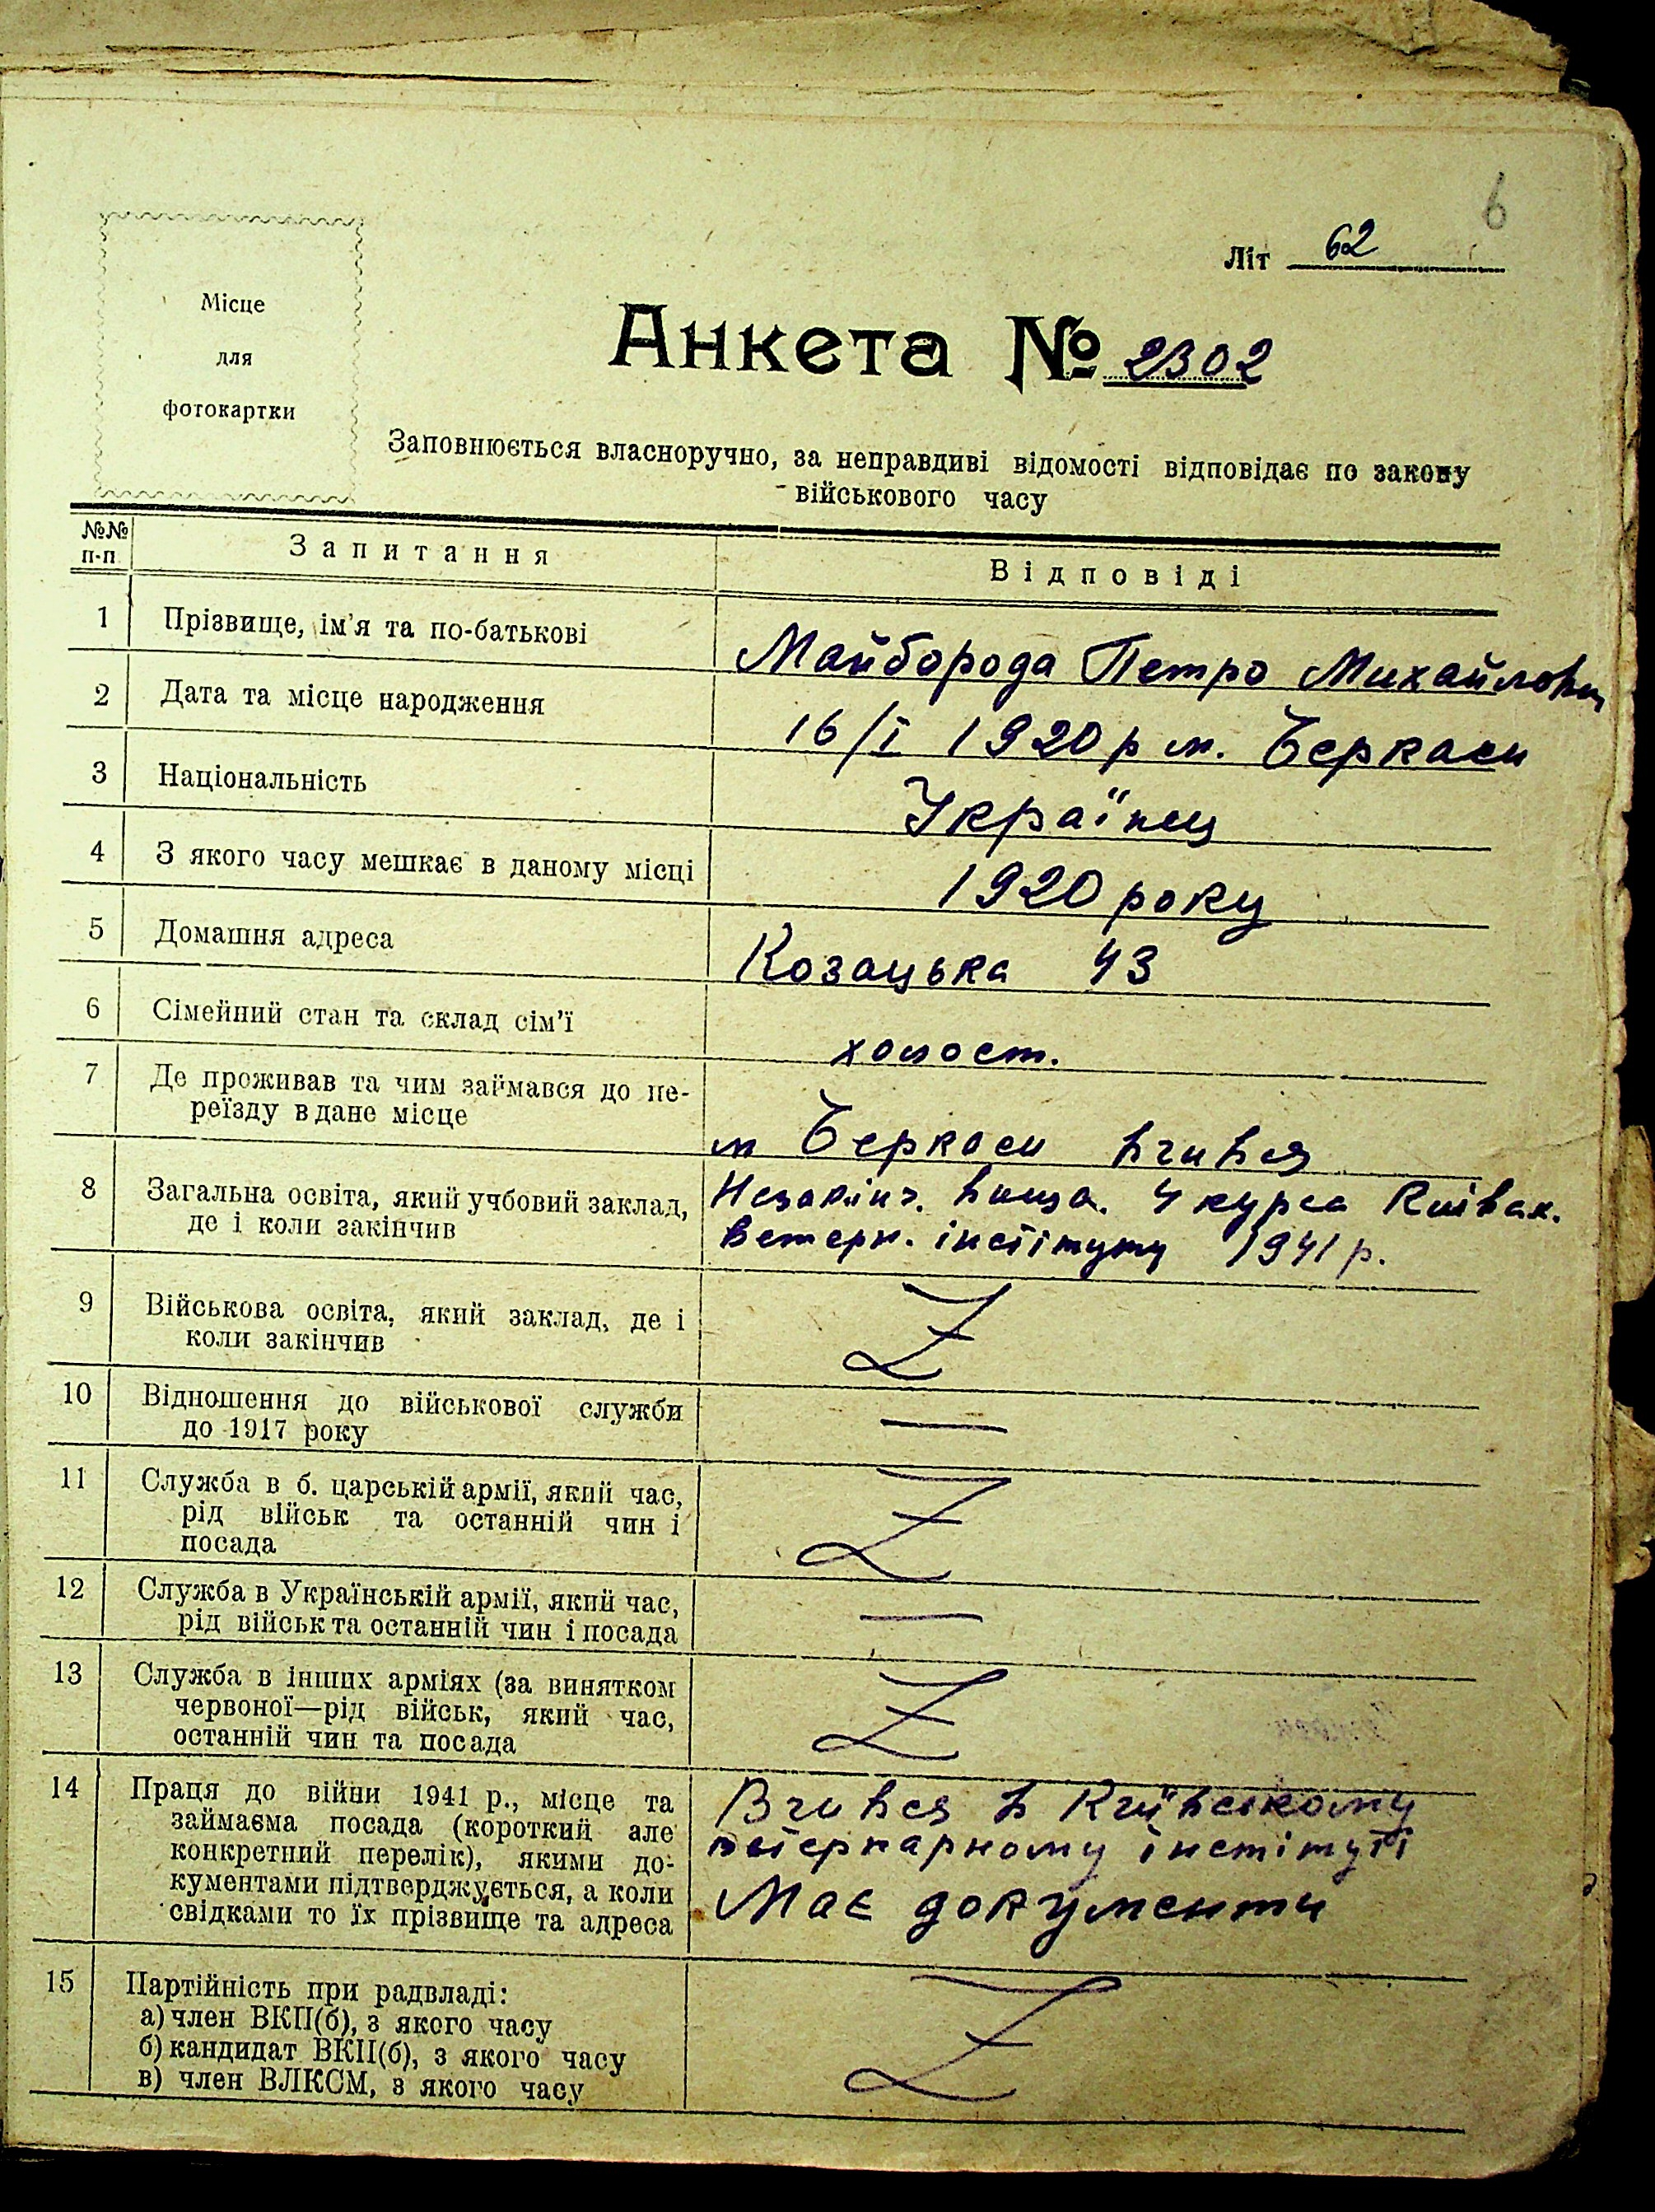 6
Літ 62
Місце
для
фотокартки
Анкета № 2302
Заповнюється власноручно, за неправдиві відомості відповідає по закону
військового часу
№№ п-п
Запитання
Відповіді
1
Прізвище, ім'я та по-батькові
Майборода Петро Михайлович
2
Дата та місце народження
16/І 1920 р м. Черкаси
3
Національність
Українец
4
З якого часу мешкає в даному місці
1920 року
5
Домашня адреса
Козацька 43
6
Сімейний стан та склад сім'ї
холост.
7
Де проживав та чим займався до пе-
реїзду в дане місце
м Черкаси вчився
8
Загальна освіта, який учбовий заклад,
де і коли закінчив
Незакінч. вища. 4 курса
Ветерн. інстітуту 1941 р.
9
Військова освіта, який заклад, де і
коли закінчив
10
Відношення до військової служби
до 1917 року
—
11
Служба в б. царській армії, який час,
рід військ та останній чин і
посада
12
Служба в Українській армії, який час,
рід військ та останній чин і посада
—
13
Служба в інших арміях (за винятком
червоної—рід військ, який час,
останній чин та посада
14
Праця до війни 1941 р., місце та
займаєма посада (короткий але
конкретний перелік), якими до-
кументами підтверджується, а коли
свідками то їх прізвище та адреса
Вчився в Київському
інстітуті
Має документи
15
Партійність при радвладі:
а) член ВКП(б), з якого часу
б) кандидат ВКП(б), з якого часу
в) член ВЛКСМ, з якого часу